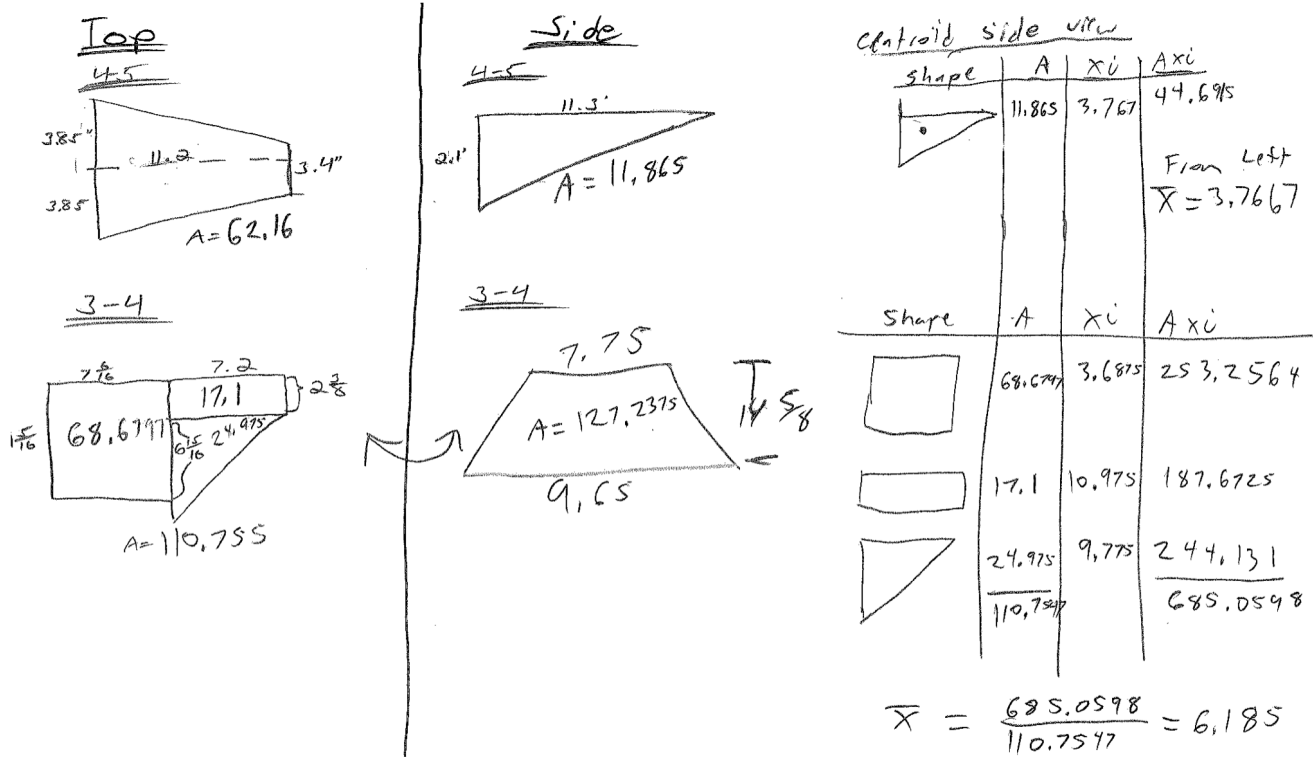 Top
4-5
3.85"
11.2
3.4"
3.85
A=62.16
3-4
7 6/16
7.2
17.1
2 3/8
68.6797
6 15/16
24.975
A=110.755
Side
4-5
11.3'
2.1'
A=11.865
3-4
7.75
A=127.2375
5/8
9.65
Centroid side view
shape A xi Axi
11.865 3.767 44.695
From Left
x̄=3.7667
Shape A xi Axi
68.6797 3.6875 253.2564
17.1 10.975 187.6725
24.975 9.775 244.131
110.7547 685.0598
x̄ = 685.0598/110.7547 = 6.185